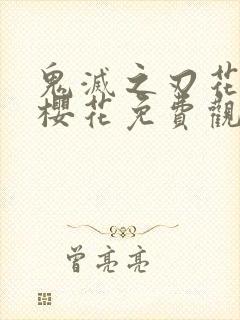 鬼滅之刃花
櫻花免費觀
曾亮亮